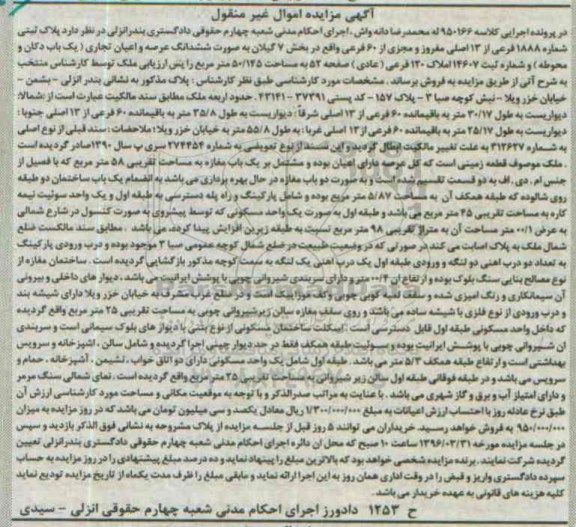 آگهی مزایده اموال غیر منقول
در پرونده اجرایی کلاسه ۹۵۰۱۶۶ له محمدرضا دانه واش، اجرای احکام مدنی شعبه چهارم حقوقی دادگستری بندرانزلی در نظر دارد پلاک ثبتی
شماره ۱۸۸۸ فرعی از ۱۳ اصلی مفروز و مجزی از ۶۰ فرعی واقع در بخش ۷ گیلان به صورت ششدانگ عرصه و اعیان تجاری (یک باب دکان و
محوطه) و شماره ثبت ۱۴۶۰۷ املاک ۱۲۰ فرعی (عادی) صفحه ۵۲ به مساحت ۵۰/۱۴۵ متر مربع را پس ارزیابی ملک توسط کارشناس منتخب
به شرح آتی از طریق مزایده به فروش برساند. مشخصات مورد کارشناسی طبق نظر کارشناس: پلاک مذکور به نشانی بندر انزلی - پشمن -
خیابان خزر ویلا - نبش کوچه صبا ۳ - پلاک ۱۵۷ - کد پستی ۳۷۳۹۱ - ۴۳۱۴۱. حدود اربعه ملک مطابق سند مالکیت عبارت است از: شمالا:
دیواریست به طول ۳۰/۱۷ متر به باقیمانده ۶۰ فرعی از ۱۳ اصلی شرقاً: دیواریست به طول ۳۵/۸ متر به باقیمانده ۶۰ فرعی از ۱۳ اصلی جنوبا:
دیواریست به طول ۲۵/۱۷ متر به باقیمانده ۶۰ فرعی از ۱۳ اصلی غربا: به طول ۵۵/۸ متر به خیابان خزر ویلا؛ ملاحضات: سند قبلی از نوع اصلی
به شماره ۳۱۲۶۲۷ به علت تغییر مالکیت ابطال گردید و این سند از نوع تعویضی به شماره ۲۷۴۴۵۴ سری پ سال ۱۳۹۰ صادر گردیده است
. ملک موصوف قطعه زمینی است که کل عرصه دارای اعیان بوده و مشتمل بر یک باب مغازه به مساحت تقریبی ۵۸ متر مربع که با فصیل از
جنس ام. دی. اف به دو قسمت تقسیم شده است و به صورت دو باب مغازه در حال بهره برداری می باشد به انضمام یک باب ساختمان دو طبقه
روی شالوده که طبقه همکف آن به مساحت ۵/۸۷ متر مربع بوده و شامل پارکینگ و راه پله دسترسی به طبقه اول و یک واحد سوئیت نیمه
کاره به مساحت تقریبی ۲۵ متر مربع می باشد و طبقه اول به صورت یک واحد مسکونی که توسط پیشروی به صورت کنسول در شارع شمالی
به عرض ۰۰/۱ متر مساحت آن به متراژ تقریبی ۹۸ متر مربع نسبت به طبقه زیرین افزایش پیدا کرده، می باشد. مطابق سند مالکیت ضلع
شمال ملک به پلاک اصابت می کند در صورتی که در وضعیت طبیعت در ضلع شمال کوچه عمومی صبا ۳ موجود بوده و درب ورودی پارکینگ
به تعداد دو درب اهنی دو لنگه و ورودی طبقه اول یک درب اهنی یک لنگه به سمت کوچه مذکور بازگشایی گردیده است. ساختمان مغازه از
نوع مصالح بنایی سنگ بلوک بوده و ارتفاع ان ۰۰/۴ متر و دارای سربندی شیروانی چوبی با پوشش ایرانیت می باشد، دیوار های داخلی و بیرونی
آن سیمانکاری و رنگ امیزی شده و سقف لمبه کوبی چوبی و کف موزاییک است و در ضلع غرب مشرف به خیابان خزر ویلا دارای شیشه بند
و درب ورودی از نوع فلزی با شیشه ساده می باشد و روی سقف مغازه سالن زیرشیروانی چوبی به مساحت تقریبی ۲۵ متر مربع واقع گردیده
که داخل واحد مسکونی طبقه اول قابل دسترسی است. اسکلت ساختمان مسکونی از نوع بتنی با دیوار های بلوک سیمانی است و سربندی
ان شیروانی چوبی با پوشش ایرانیت بوده و سوئیت طبقه همکف فقط در حد دیوار چینی اجرا گردیده و شامل سالن، اشپزخانه و سرویس
بهداشتی است و ارتفاع طبقه همکف ۵/۳ متر می باشد. طبقه اول شامل یک واحد مسکونی دارای دو اتاق خواب، نشیمن، آشپزخانه، حمام و
سرویس می باشد و در طبقه فوقانی طبقه اول سالن زیر شیروانی به مساحت تقریبی ۲۵ متر مربع واقع گردیده است. نمای شمالی سنگ مرمر
و دارای امتیاز آب و برق و گاز شهری می باشد. با عنایت به مراتب صدرالذکر و با توجه به موقعیت مکانی و مساحت مورد کارشناسی ارزش آن
طبق نرخ عادله روز با احتساب ارزش اعیانات به مبلغ ۱/۳۰۰/۰۰۰/۰۰۰ ریال معادل یکصد و سی میلیون تومان می باشد که در روز مزایده به میزان
۹۵۰/۰۰۰/۰۰۰ به فروش خواهد رسید. خریداران می توانند ۵ روز قبل از جلسه مزایده از پلاک مشروحه به نشانی فوق الذکر بازدید و سپس
در جلسه مزایده مورخه ۱۳۹۶/۰۳/۳۱ ساعت ۱۰ صبح که محل ان دایره اجرای احکام مدنی شعبه چهارم حقوقی دادگستری بندرانزلی تعیین
گردیده شرکت نمایند. برنده مزایده شخصی خواهد بود که بالاترین مبلغ را پیشنهاد نماید و ده درصد مبلغ پیشنهادی را در روز مزایده به حساب
سپرده دادگستری واریز و قبض را در وقت اداری همان روز به این اجرا ارائه نماید و مابقی مبلغ را ظرف مدت یکماه از تاریخ مزایده تودیع نماید
کلیه هزینه های قانونی به عهده خریدار می باشد.
ح ۱۲۵۳ دادورز اجرای احکام مدنی شعبه چهارم حقوقی انزلی - سیدی